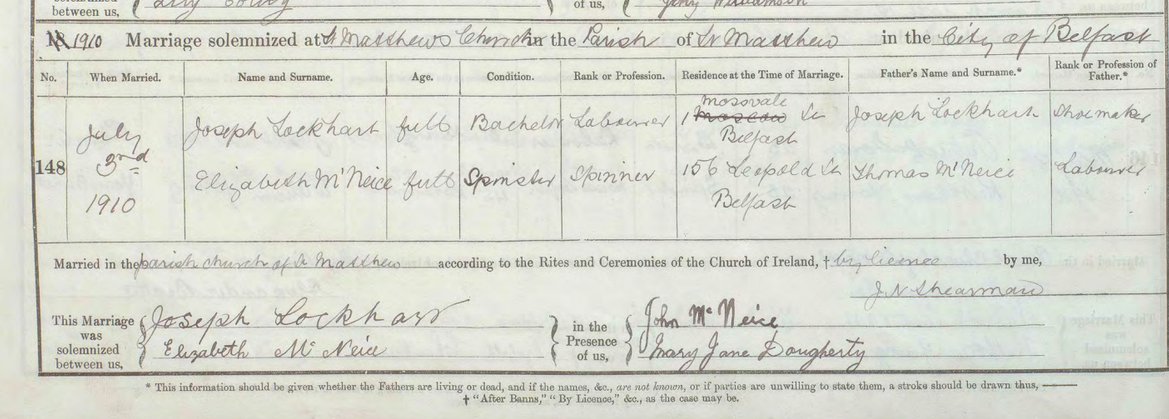 between us,
of us,
1910 Marriage solemnized at St Matthews Church in the Parish of St Matthew in the City of Belfast
No. When Married. Name and Surname. Age. Condition. Rank or Profession. Residence at the Time of Marriage. Father's Name and Surname.* Rank or Profession of Father.*
148 July 3rd 1910
Joseph Lockhart full Bachelor Labourer 1 Mosovale St Belfast Joseph Lockhart Shoemaker
Elizabeth McNeice full Spinster Spinner 156 Leopold St Belfast Thomas McNeice Labourer
Married in the parish church of St Matthew according to the Rites and Ceremonies of the Church of Ireland, † by licence by me,
J. N. Shearman
This Marriage was solemnized between us, Joseph Lockhart
Elizabeth McNeice
in the Presence of us, John McNeice
Mary Jane Dougherty
* This information should be given whether the Fathers are living or dead, and if the names, &c., are not known, or if parties are unwilling to state them, a stroke should be drawn thus, ——
† "After Banns," "By Licence," &c., as the case may be.